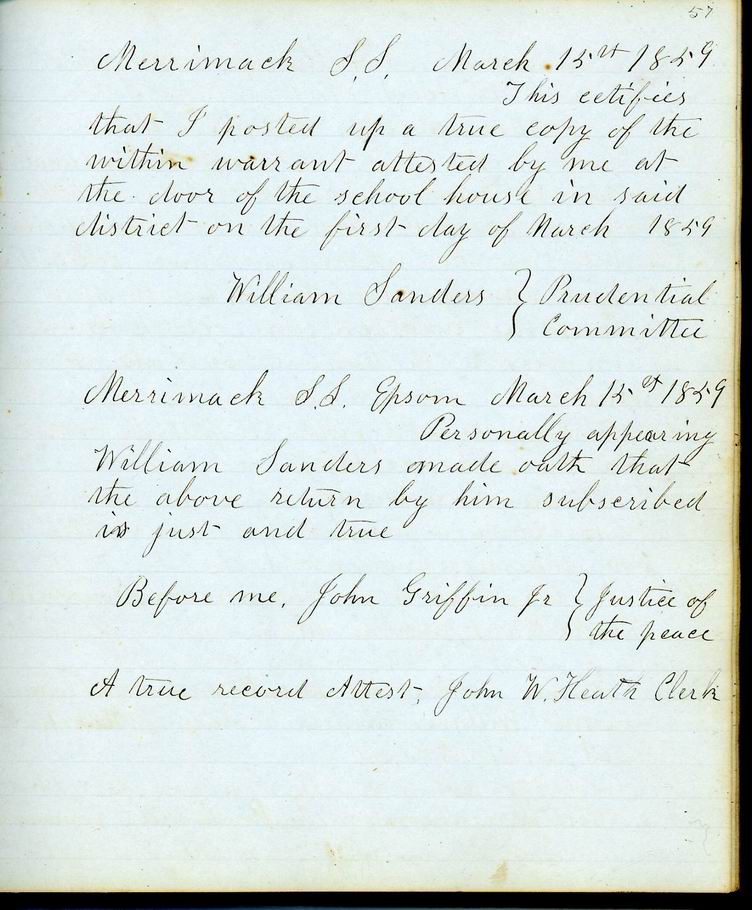 57
Merrimack S.S. March 15st 1859
This cetifies
that I posted up a true copy of the
within warrant attested by me at
the door of the school house in said
district on the first day of March 1859
William Sanders } Prudential
Committee
Merrimack S.S. Epsom March 15st 1859
Personally appearing
William Sanders made oath that
the above return by him subscribed
is just and true
Before me, John Griffin Jr } Justice of
the peace
A true record Attest, John W. Heath Clerk